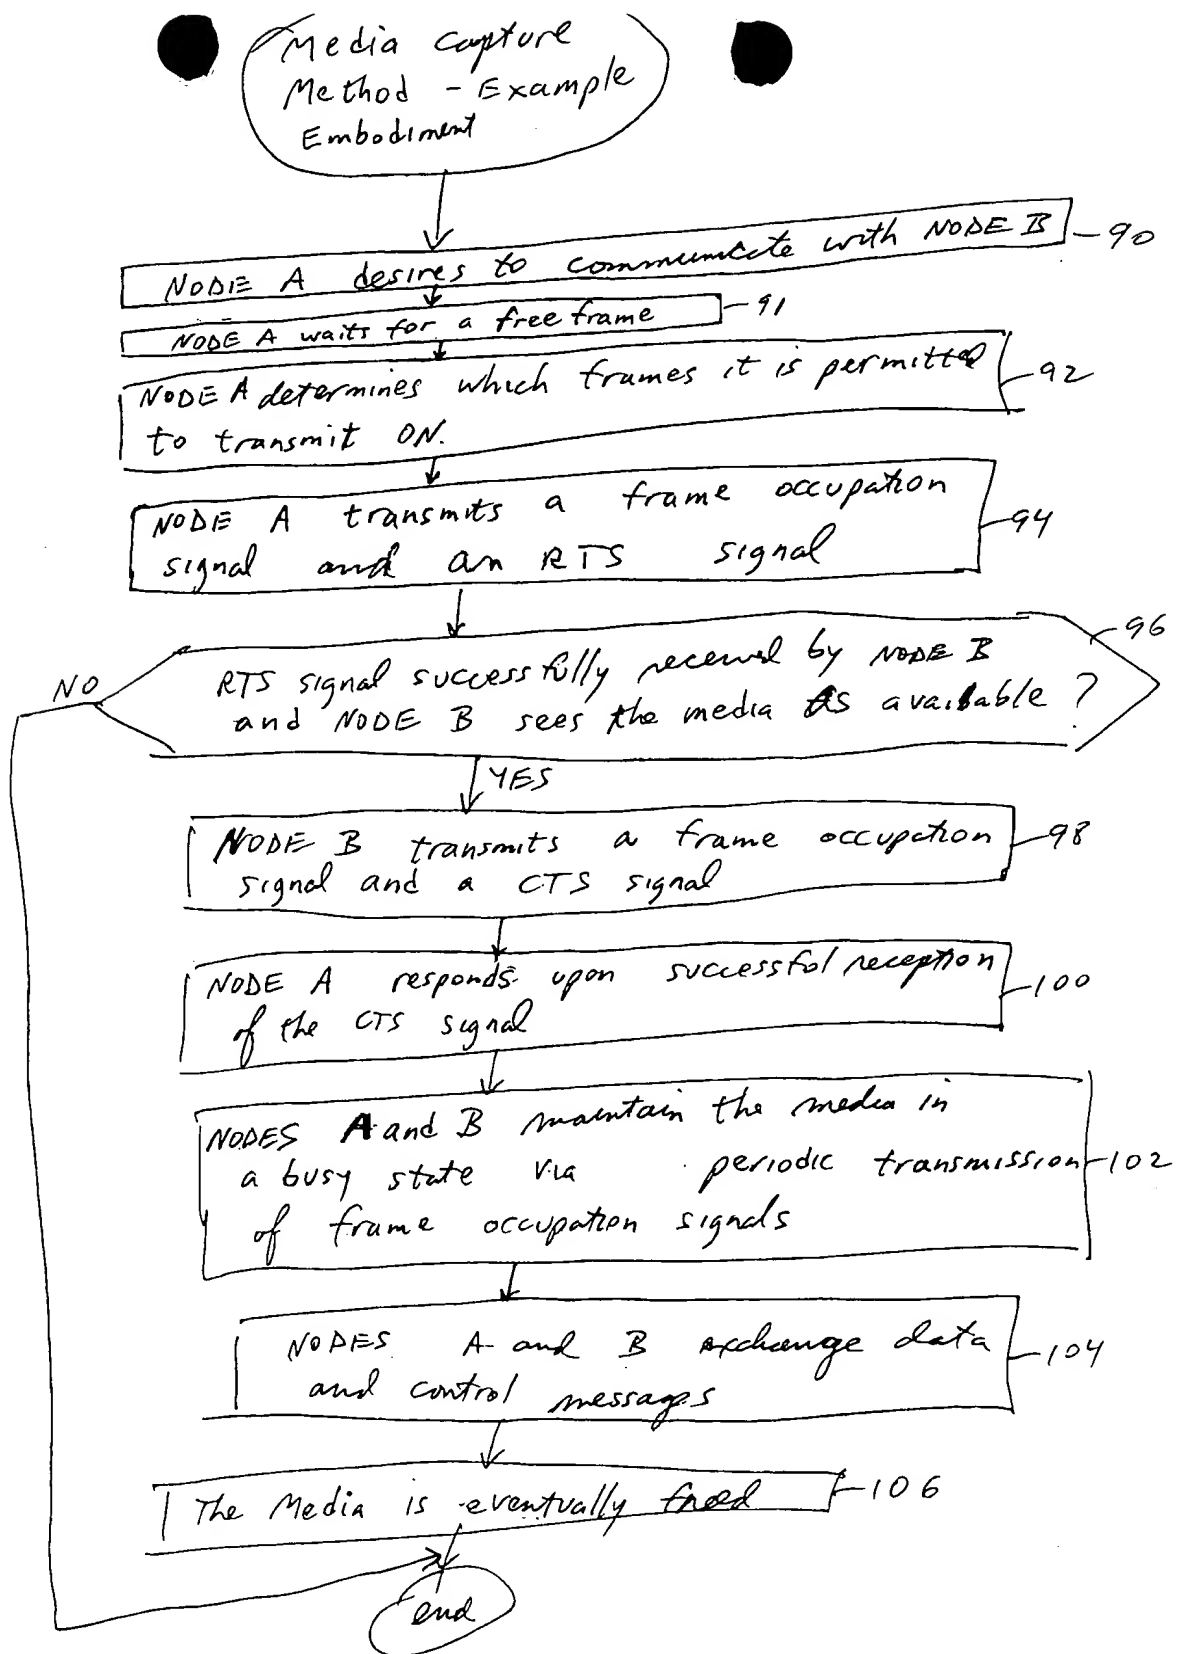 Media Capture
Method - Example
Embodiment
NODE A desires to communicate with NODE B
90
NODE A waits for a free frame
91
NODE A determines which frames it is permitted
92
to transmit ON.
NODE A transmits a frame occupation
94
signal and an RTS signal
96
NO
RTS signal successfully received by NODE B
and NODE B sees the media as available ?
YES
NODE B transmits a frame occupation
98
signal and a CTS signal
NODE A responds upon successful reception
100
of the CTS signal
NODES A and B maintain the media in
a busy state via periodic transmission
102
of frame occupation signals
NODES A and B exchange data
104
and control messages
The Media is eventually freed
106
end